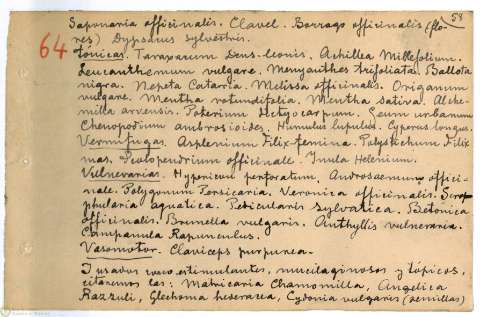 58
Saponaria officinalis. Clavel. Borrago officinalis (flo-
res) Dypsacus sylvestris.
64
tónicas. Taraxacum Dens-leonis, Achillea Millefolium.
Leucanthemum vulgare. Menyanthes trifoliata. Ballota
nigra. Nepeta Cataria. Melissa officinalis. Origanum
vulgare. Mentha rotundifolia. Mentha sativa. Alche-
milla arvensis. Poterium Dictyocarpum. Geum urbanum
Chenopodium ambrosioides. Humulus lupulus. Cyperus longus.
Vermífugas. Asplenium Filix-femina. Polystichum Filix
mas. Scolopendrium officinale. Inula Helenium.
Vulnerarias. Hypericum perforatum. Androsaemum offici-
nale. Polygonum Persicaria. Veronica officinalis. Scro-
phularia aquatica. Pedicularis sylvatica. Betonica
officinalis. Brunella vulgaris. Anthyllis vulneraria.
Campanula Rapunculus.
Vasomotor. Claviceps purpurea.
Y usados como estimulantes, mucilaginosos y tópicos,
citaremos las: Matricaria Chamomilla, Angelica
Razzuli, Glechoma hederacea, Cydonia vulgaris (semillas)